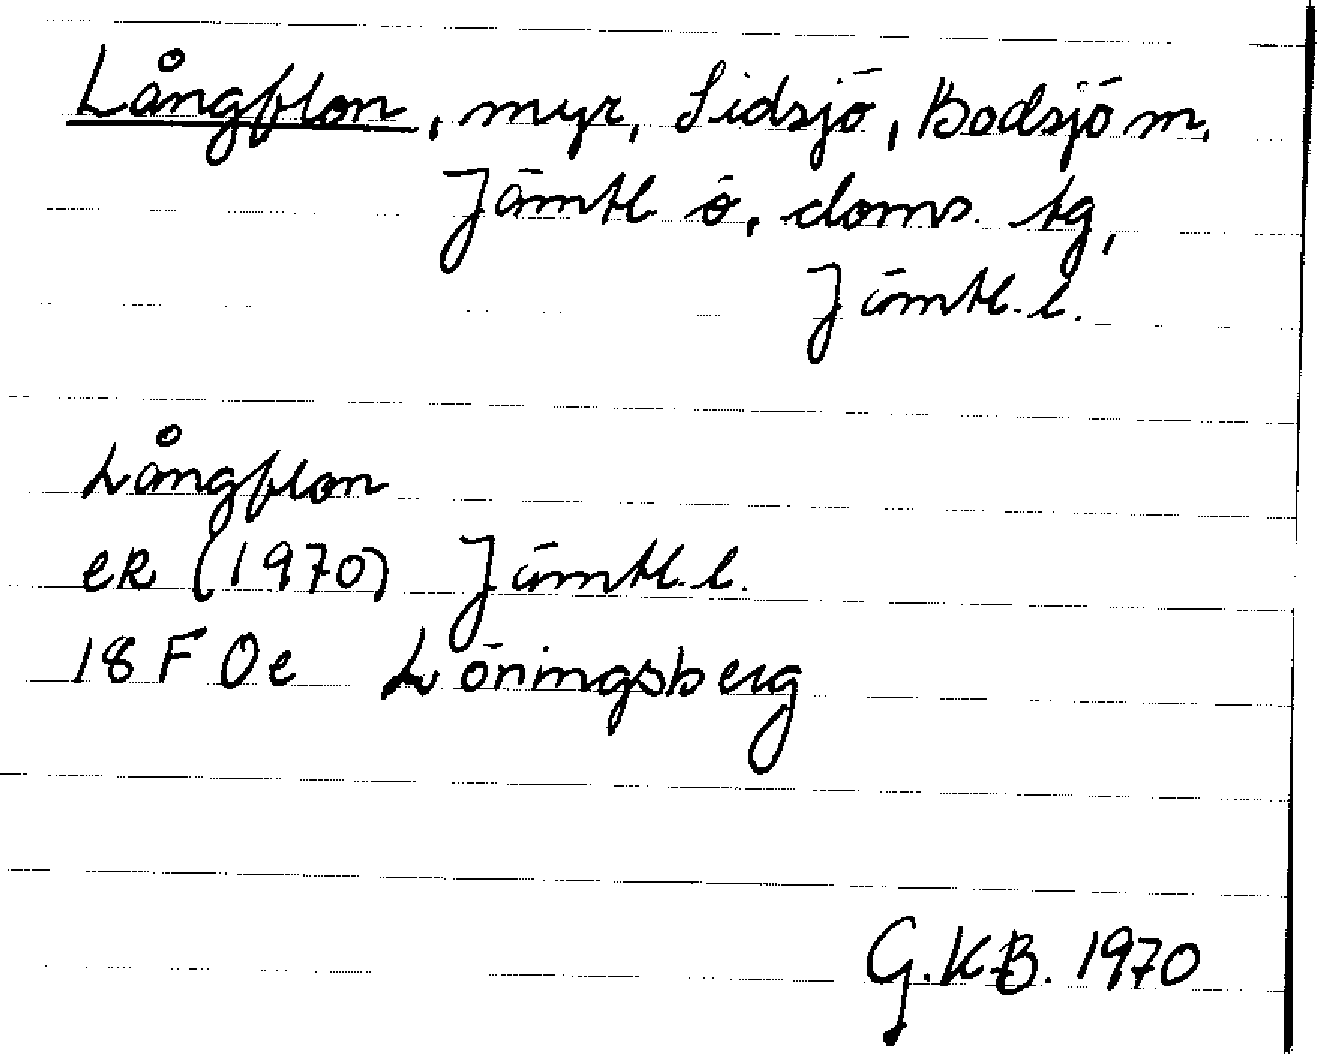 Långflon, myr, Sidsjö, Bodsjö m,
Jämtl ö, doms. tg,
Jämtl. l.
Långflon
eR (1970) Jämtl. l.
18 F 0e Löningsberg
G.K.B. 1970